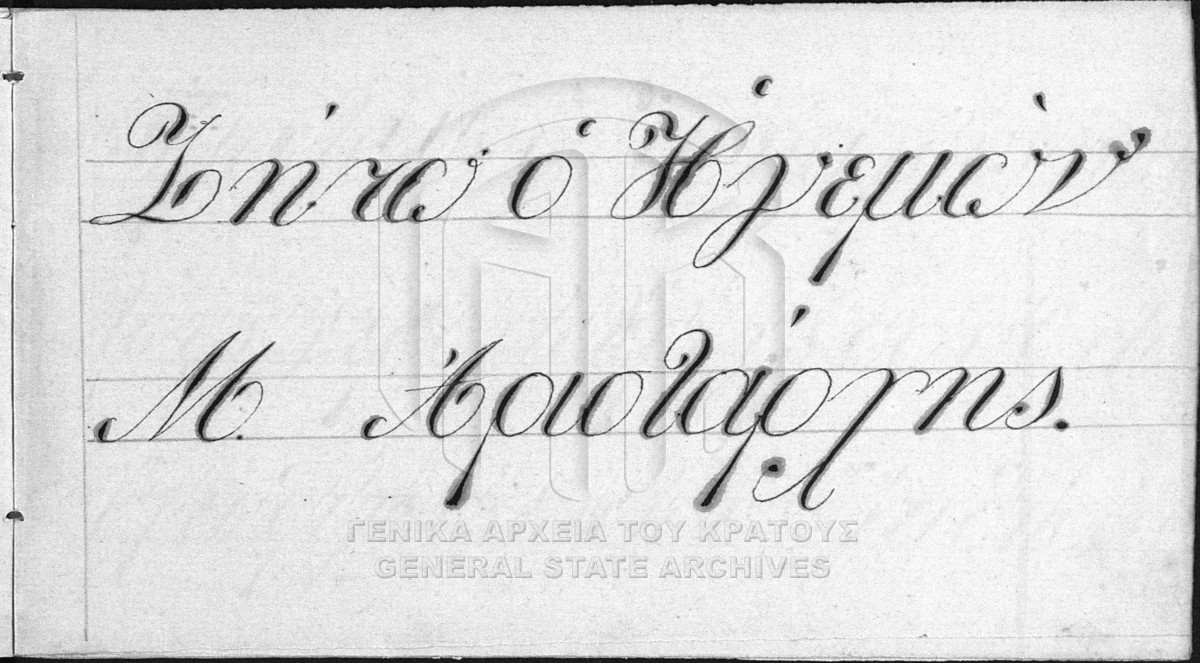 Ζήτω ὁ Ἡγεμὼν
Μ. Ἀριστάρχης.
ΓΕΝΙΚΑ ΑΡΧΕΙΑ ΤΟΥ ΚΡΑΤΟΥΣ
GENERAL STATE ARCHIVES